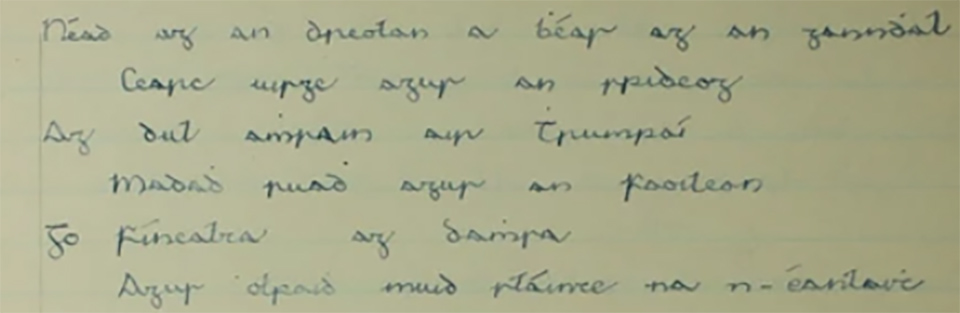 Néad ag an dreolan a ḃéas ag an ganndal
Cearc uisge agus an spideog
Ag dul aṁrain air trumpaí
Madaḋ ruaḋ agus an faoilean
Go fínealta ag daṁsa
Agus ólfaiḋ muid sláinte na n-éanlaiṫ